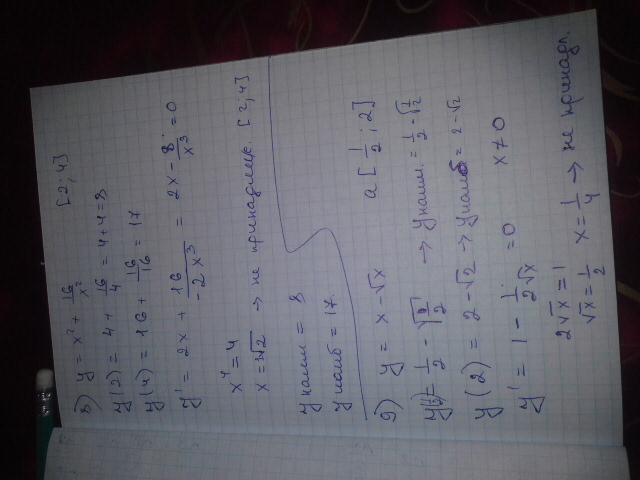 8) y = x² + 16/x² [2; 4]
y(2) = 4 + 16/4 = 4+4=8
y(4) = 16 + 16/16 = 17
y' = 2x + 16/-2x³ = 2x - 8/x³ = 0
x⁴ = 4
x = ∜2 → не принадлеж. [2; 4]
y наим = 8
y наиб = 17.
9) y = x - √x a [1/2; 2]
y(½) = 1/2 - √1/2 → y наим. = 1/2 - √1/2
y(2) = 2 - √2 → y наиб = 2 - √2
y' = 1 - 1/2√x = 0 x ≠ 0
2√x = 1
√x = 1/2 x = 1/4 → не принадл.